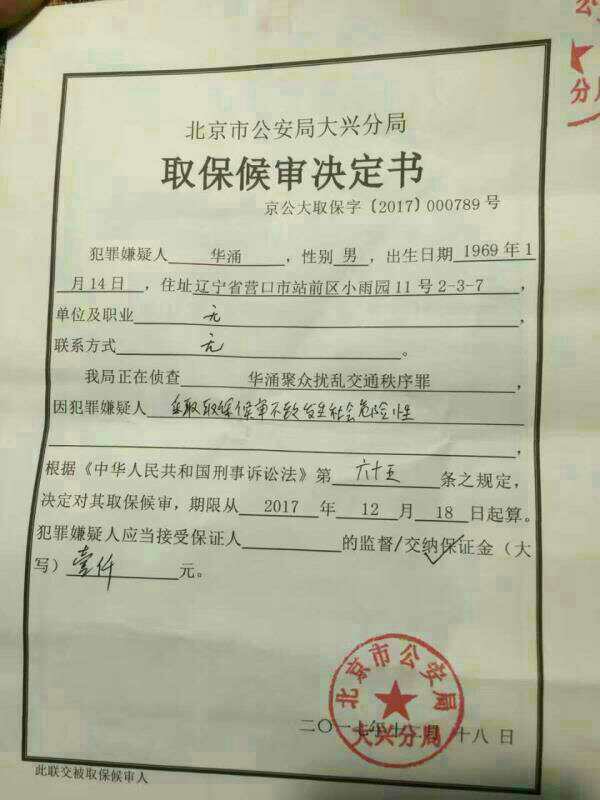 北京市公安局大兴分局
取保候审决定书
京公大取保字〔2017〕000789号
犯罪嫌疑人 华涌 ，性别 男 ，出生日期 1969年1
月14日 ，住址辽宁省营口市站前区小雨园11号2-3-7 ，
单位及职业 无 ，
联系方式 无 。
我局正在侦查 华涌聚众扰乱交通秩序罪
因犯罪嫌疑人 采取取保候审不致发生社会危险性
，
根据《中华人民共和国刑事诉讼法》第 六十五 条之规定，
决定对其取保候审，期限从 2017 年 12 月 18 日起算。
犯罪嫌疑人应当接受保证人 的监督/交纳保证金（大
写）壹仟 元。
北京市公安局
大兴分局
二〇一七年十二月十八日
此联交被取保候审人
公
分局